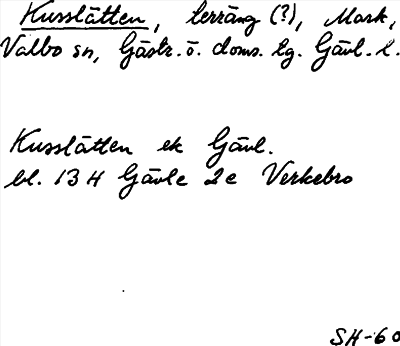 Kusslätten, terräng (?), Mark,
Valbo sn, Gästr. ö. doms. tg. Gävl. l.
Kusslätten ek Gävl.
bl. 13 H Gävle 2c Verkebro
SH-60